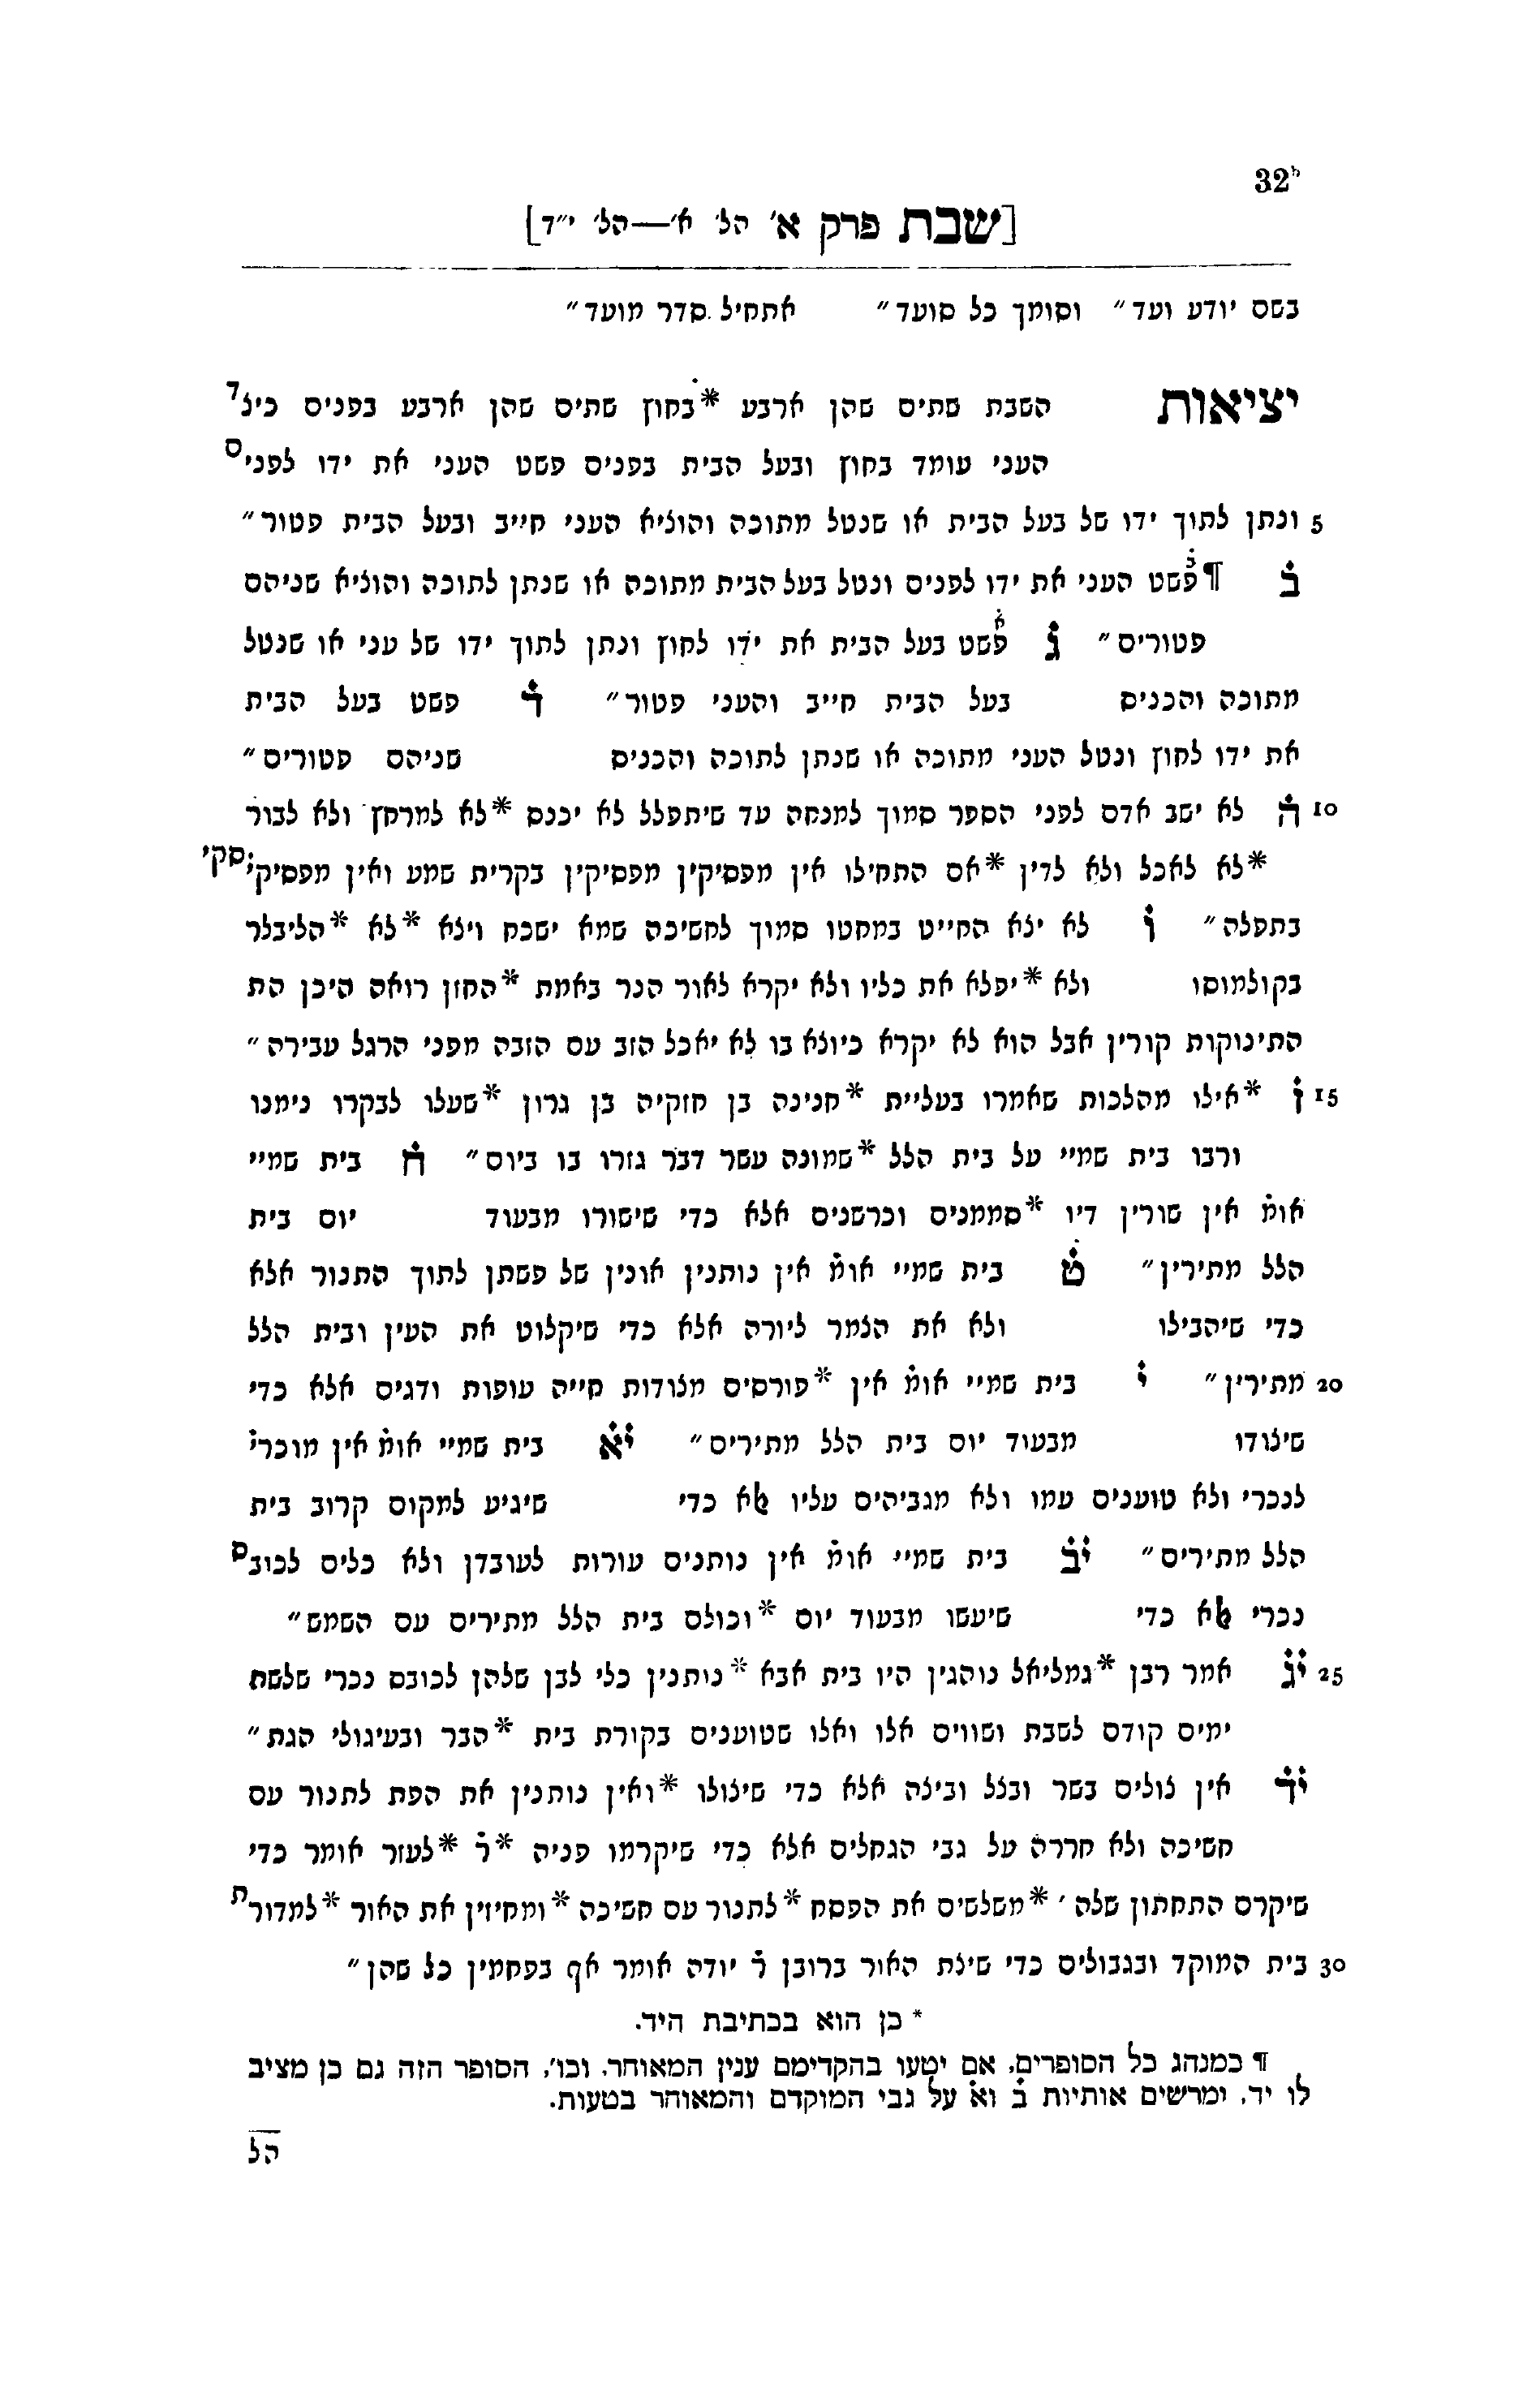 32ᵇ
[שבת פרק א׳ הל׳ א׳—הל׳ י״ד]
בשם יודע ועד״ וסומך כל סועד״ אתחיל סדר מועד״
יציאות השבת שתים שהן ארבע *בחוץ שתים שהן ארבע בפנים כיצד
העני עומד בחוץ ובעל הבית בפנים פשט העני את ידו לפנים
5 ונתן לתוך ידו של בעל הבית או שנטל מתוכה והוציא העני חייב ובעל הבית פטור״
ב ¶פשט העני את ידו לפנים ונטל בעל הבית מתוכה או שנתן לתוכה והוציא שניהם
פטורים״ ג פשט בעל הבית את ידו לחוץ ונתן לתוך ידו של עני או שנטל
מתוכה והכניס בעל הבית חייב והעני פטור״ ד פשט בעל הבית
את ידו לחוץ ונטל העני מתוכה או שנתן לתוכה והכניס שניהם פטורים״
10 ה לא ישב אדם לפני הספר סמוך למנחה עד שיתפלל לא יכנס *לא למרחץ ולא לבור
*לא לאכל ולא לדין *אם התחילו אין מפסיקין מפסיקין בקרית שמע ואין מפסיקי׳
בתפלה״ ו לא יצא החייט במחטו סמוך לחשיכה שמא ישכח ויצא *לא *הליבלר
בקולמוסו ולא *יפלא את כליו ולא יקרא לאור הנר באמת *החזן רואה היכן הת
התינוקות קורין אבל הוא לא יקרא כיוצא בו לא יאכל הזב עם הזבה מפני הרגל עבירה״
15 ז *אילו מהלכות שאמרו בעליית *חנינה בן חזקיה בן גרון *שעלו לבקרו נימנו
ורבו בית שמיי על בית הלל *שמונה עשר דבר גזרו בו ביום״ ח בית שמיי
אומ̇ אין שורין דיו *סממנים וכרשנים אלא כדי שישורו מבעוד יום בית
הלל מתירין״ ט בית שמיי אומ̇ אין נותנין אונין של פשתן לתוך התנור אלא
כדי שיהבילו ולא את הצמר ליורה אלא כדי שיקלוט את העין ובית הלל
20 מתירין״ י בית שמיי אומ̇ אין *פורסים מצודות חייה עופות ודגים אלא כדי
שיצודו מבעוד יום בית הלל מתירים״ יא בית שמיי אומ̇ אין מוכרי̇
לנכרי ולא טוענים עמו ולא מגביהים עליו ﭏא כדי שיגיע למקום קרוב בית
הלל מתירים״ יב בית שמיי אומ̇ אין נותנים עורות לעובדן ולא כלים לכובס
נכרי ﭏא כדי שיעשו מבעוד יום *וכולם בית הלל מתירים עם השמש״
25 יג אמר רבן *גמליאל נוהגין היו בית אבא *נותנין כלי לבן שלהן לכובס נכרי שלשת
ימים קודם לשבת ושווים אלו ואלו שטוענים בקורת בית *הבר ובעיגולי הגת״
יד אין צולים בשר ובצל וביצה אלא כדי שיצולו *ואין נותנין את הפת לתנור עם
חשיכה ולא חררה על גבי הגחלים אלא כדי שיקרמו פניה *ר̇ *לעזר אומר כדי
שיקרם התחתון שלה׳ *משלשים את הפסח *לתנור עם חשיכה *ומחיזין את האור *למדורת
30 בית המוקד ובגבולים כדי שיצת האור ברובן ר̇ יודה אומר אף בפחמין כל שהן״
* כן הוא בכתיבת היד.
¶ כמנהג כל הסופרים, אם יטעו בהקדימם ענין המאוחר, וכו׳, הסופר הזה גם כן מציב
לו יד, ומרשים אותיות ב̇ וא̇ על גבי המוקדם והמאוחר בטעות.
הל